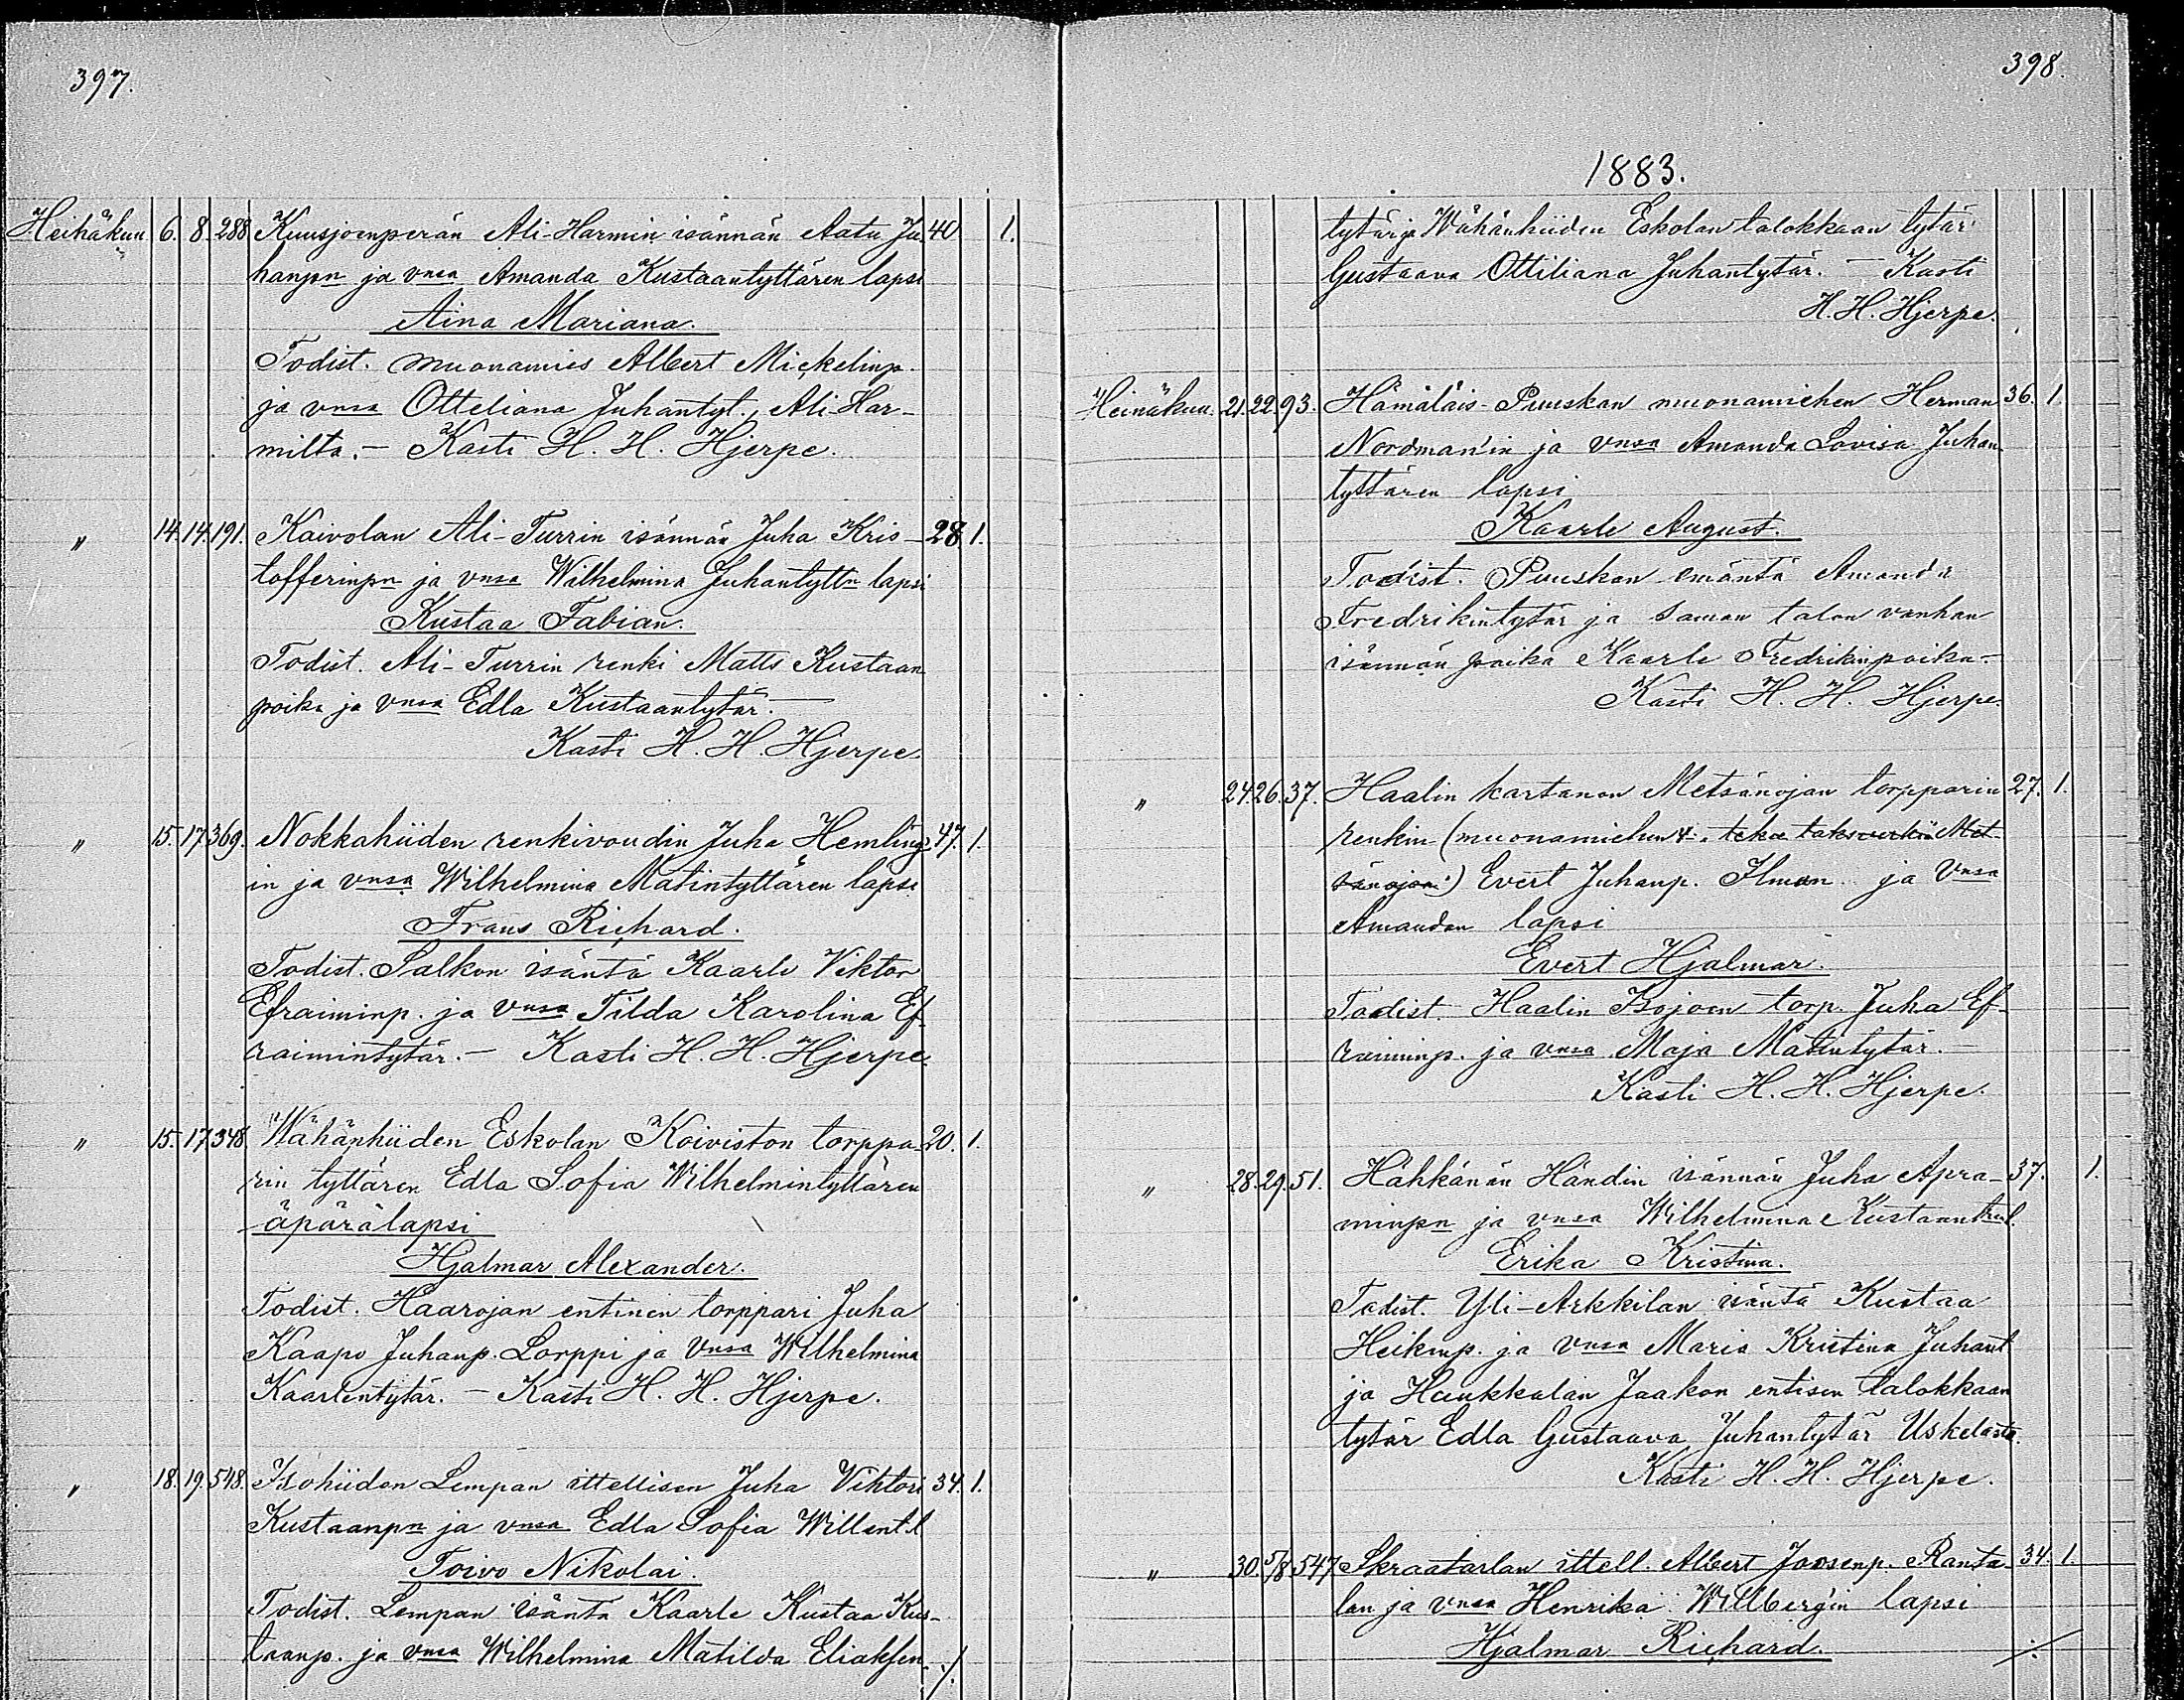 397.
Heinäkuu 6. 8. 288 Kuusjoenperän Ali-Harmin isännän Aatu Ju- 40 1.
hanpn ja vmsa Amanda Kustaantyttären lapsi
Aina Mariana.
Todist. muonamies Albert Mickelinp.
ja vmsa Otteliana Juhantyt., Ali-Har-
milta. — Kasti H. H. Hjerpe.
" 14. 14. 191. Kaivolan Ali-Turrin isännän Juha Kris- 28. 1.
tofferinpn ja vmsa Wilhelmina Juhantyttn lapsi
Kustaa Fabian.
Todist. Ali-Turrin renki Matts Kustaan
poika ja vmsa Edla Kustaantytär. —
Kasti H. H. Hjerpe.
" 15. 17. 369. Nokkahiiden renkivoudin Juha Hemling- 47. 1.
in ja vmsa Wilhelmina Matintyttären lapsi
Frans Richard.
Todist. Salkon isäntä Kaarle Viktor
Efraiminp. ja vmsa Tilda Karolina Ef-
raimintytär. — Kasti H. H. Hjerpe.
" 15. 17. 348. Wähänhiiden Eskolan Koiviston torppa- 20. 1.
rin tyttären Edla Sofia Wilhelmintyttären
äpärälapsi
Hjalmar Alexander.
Todist. Haarojan entinen torppari Juha
Kaapo Juhanp. Lorppi ja vmsa Wilhelmina
Kaarlentytär. — Kasti H. H. Hjerpe.
" 18. 19. 548. Isohiiden Lempan ittellisen Juha Viktori 34. 1.
Kustaanpn ja vmsa Edla Sofia Willent.l
Toivo Nikolai.
Todist. Lempan isäntä Kaarle Kustaa Kus-
taanp. ja vmsa Wilhelmina Matilda Eliaksen- ./.
398.
1883.
tytär ja Wähänhiiden Eskolan talokkaan tytär
Gustaava Ottiliana Juhantytär. — Kasti
H. H. Hjerpe.
Heinäkuu. 21. 22. 93. Hämäläis-Puuskan muonamiehen Herman 36. 1.
Nordman'in ja vmsa Amanda Lovisa Juhan
tyttären lapsi
Kaarle August.
Todist. Puuskan emäntä Amanda
Fredrikintytär ja saman talon vanhan
isännän poika Kaarle Fredrikinpoika. —
Kasti H. H. Hjerpe.
" 24. 26. 37. Haalin kartanon Metsänojan torpparin 27. 1.
renkin (muonamiehen teke taksverkiä Met-
sänojan) Evert Juhanp. Ilman ja vmsa
Amandan lapsi
Evert Hjalmar.
Todist. Haalin Isojoen torp. Juha Ef-
raiminp. ja vmsa Maja Matintytär. —
Kasti H. H. Hjerpe.
" 28. 29. 51. Hähkänän Händin isännän Juha Apra- 37. 1.
minpn ja vmsa Wilhelmina Kustaant
Erika Kristina.
Todist. Yli-Arkkilan isäntä Kustaa
Heikinp. ja vmsa Maria Kristina Juhant
ja Haukkalan Jaakon entisen talokkaan
tytär Edla Gustaava Juhantytär Uskelasta.
Kasti H. H. Hjerpe.
" 30. 5/8 547 Skraatarlan ittell. Albert Joosenp. Ranta- 34. 1.
lan ja vmsa Henrika Willberg'in lapsi
Hjalmar Richard. ./.